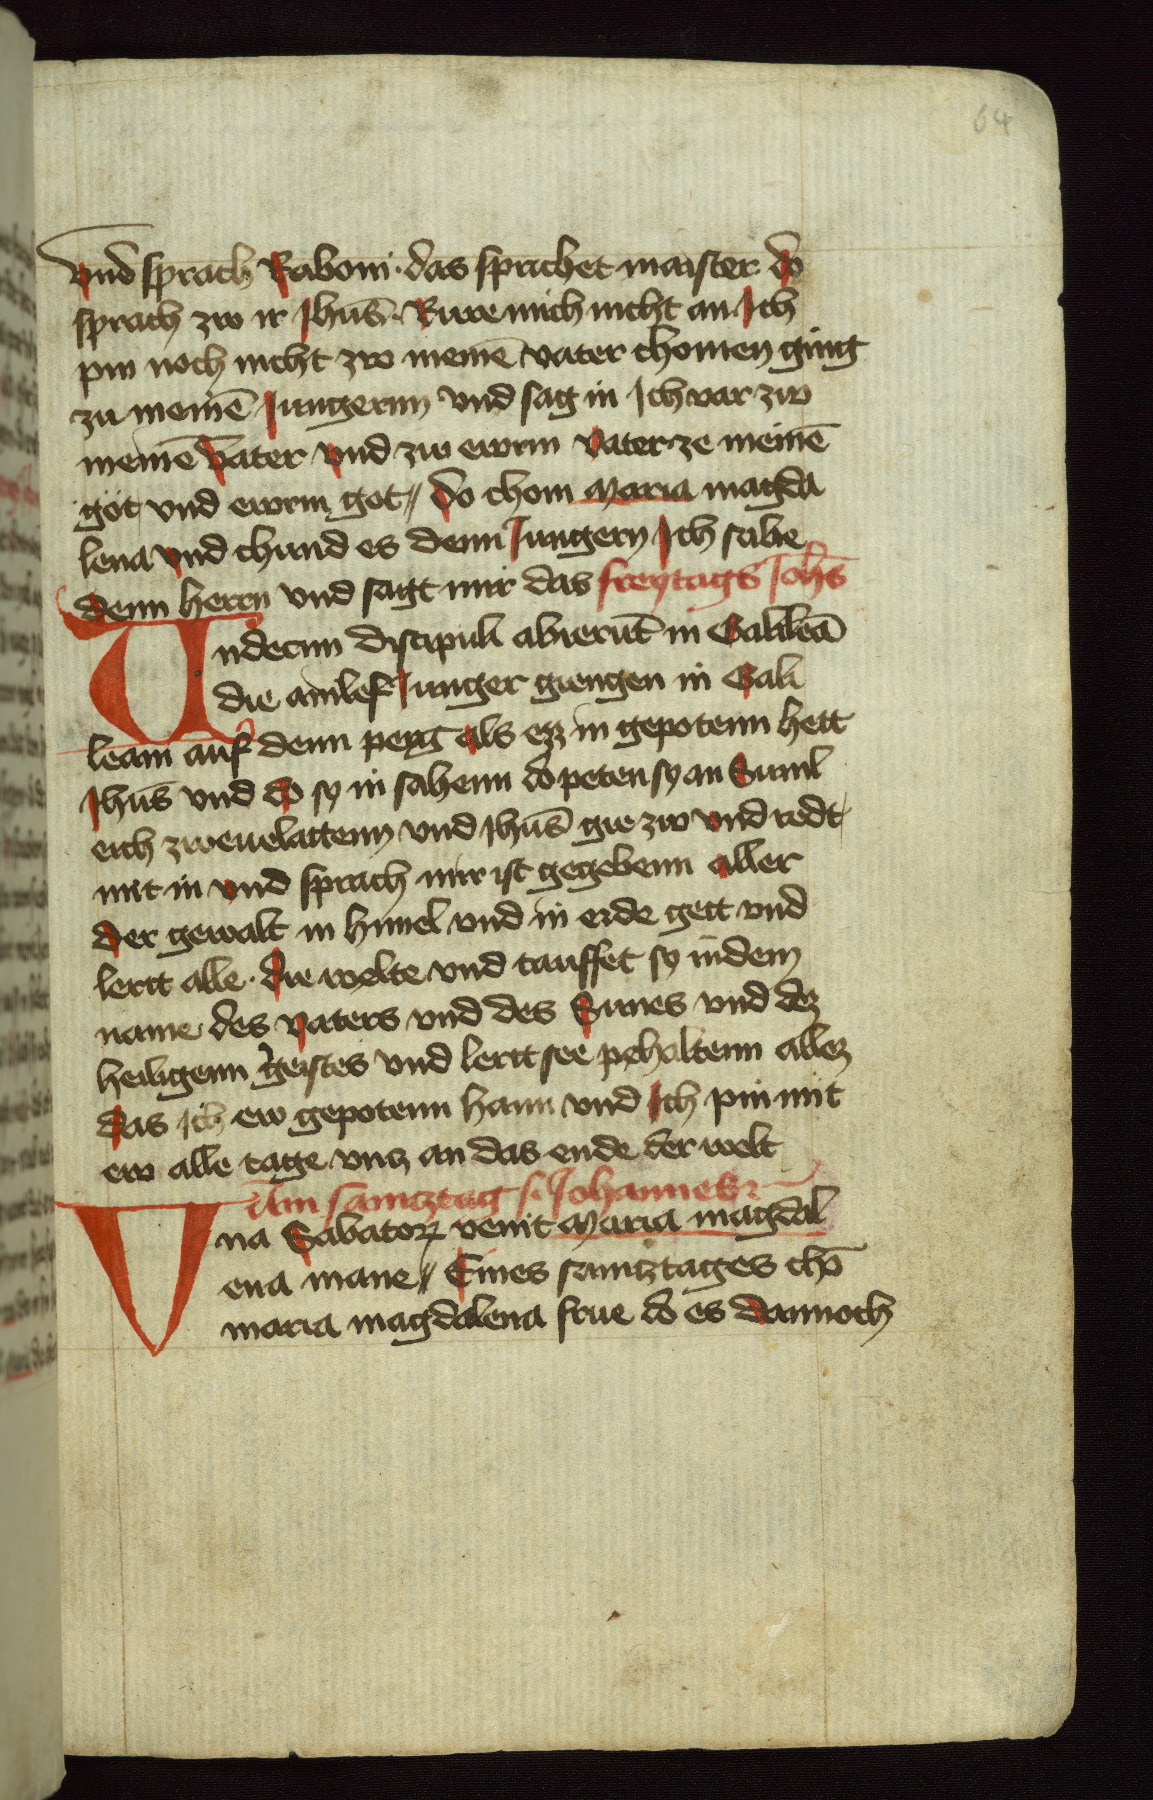 64
vnd sprach Raboni · das sprichet maister do
sprach zw ir Jhūs · Rure mich nicht an Jch
pin noch nicht zw meinē vater chomen ging
zu meinē Jungernn vnd sag in Jch var zw
meinē vater vnd zw ewrm vater ze meinē
got vnd ewrm got // do chom maria magda
lena vnd chund es denn Jungern Jch sahe
denn herrn vnd sagt mir das freytags Johs̄
Vndecim discipuli abierūt in Galileā
die ainlef Junger giengen in Gali
leam auf denn perg als ezz in gepotenn hett
Jhūs vnd do sy in sahenn do peten sy an Suml
eich zweuelattenn vnd Jhūs gie zw vnd redt
mit in vnd sprach mir ist gegebenn aller
der gewalt in himel vnd in erde gett vnd
lertt alle · die welte vnd tauffet sy in dem
name des vaters vnd des Sunes vnd dez
heiligenn geistes vnd lertt see pehaltenn allez
das Jch ew gepotenn hann vnd Jch pin mit
ew alle tage vntz an das ende der welt
Am samtztag s Johannes
Vna Sabatoꝝ venit maria magdal
ena mane // Eines samtztages chō
maria magdalena frue do es dannoch